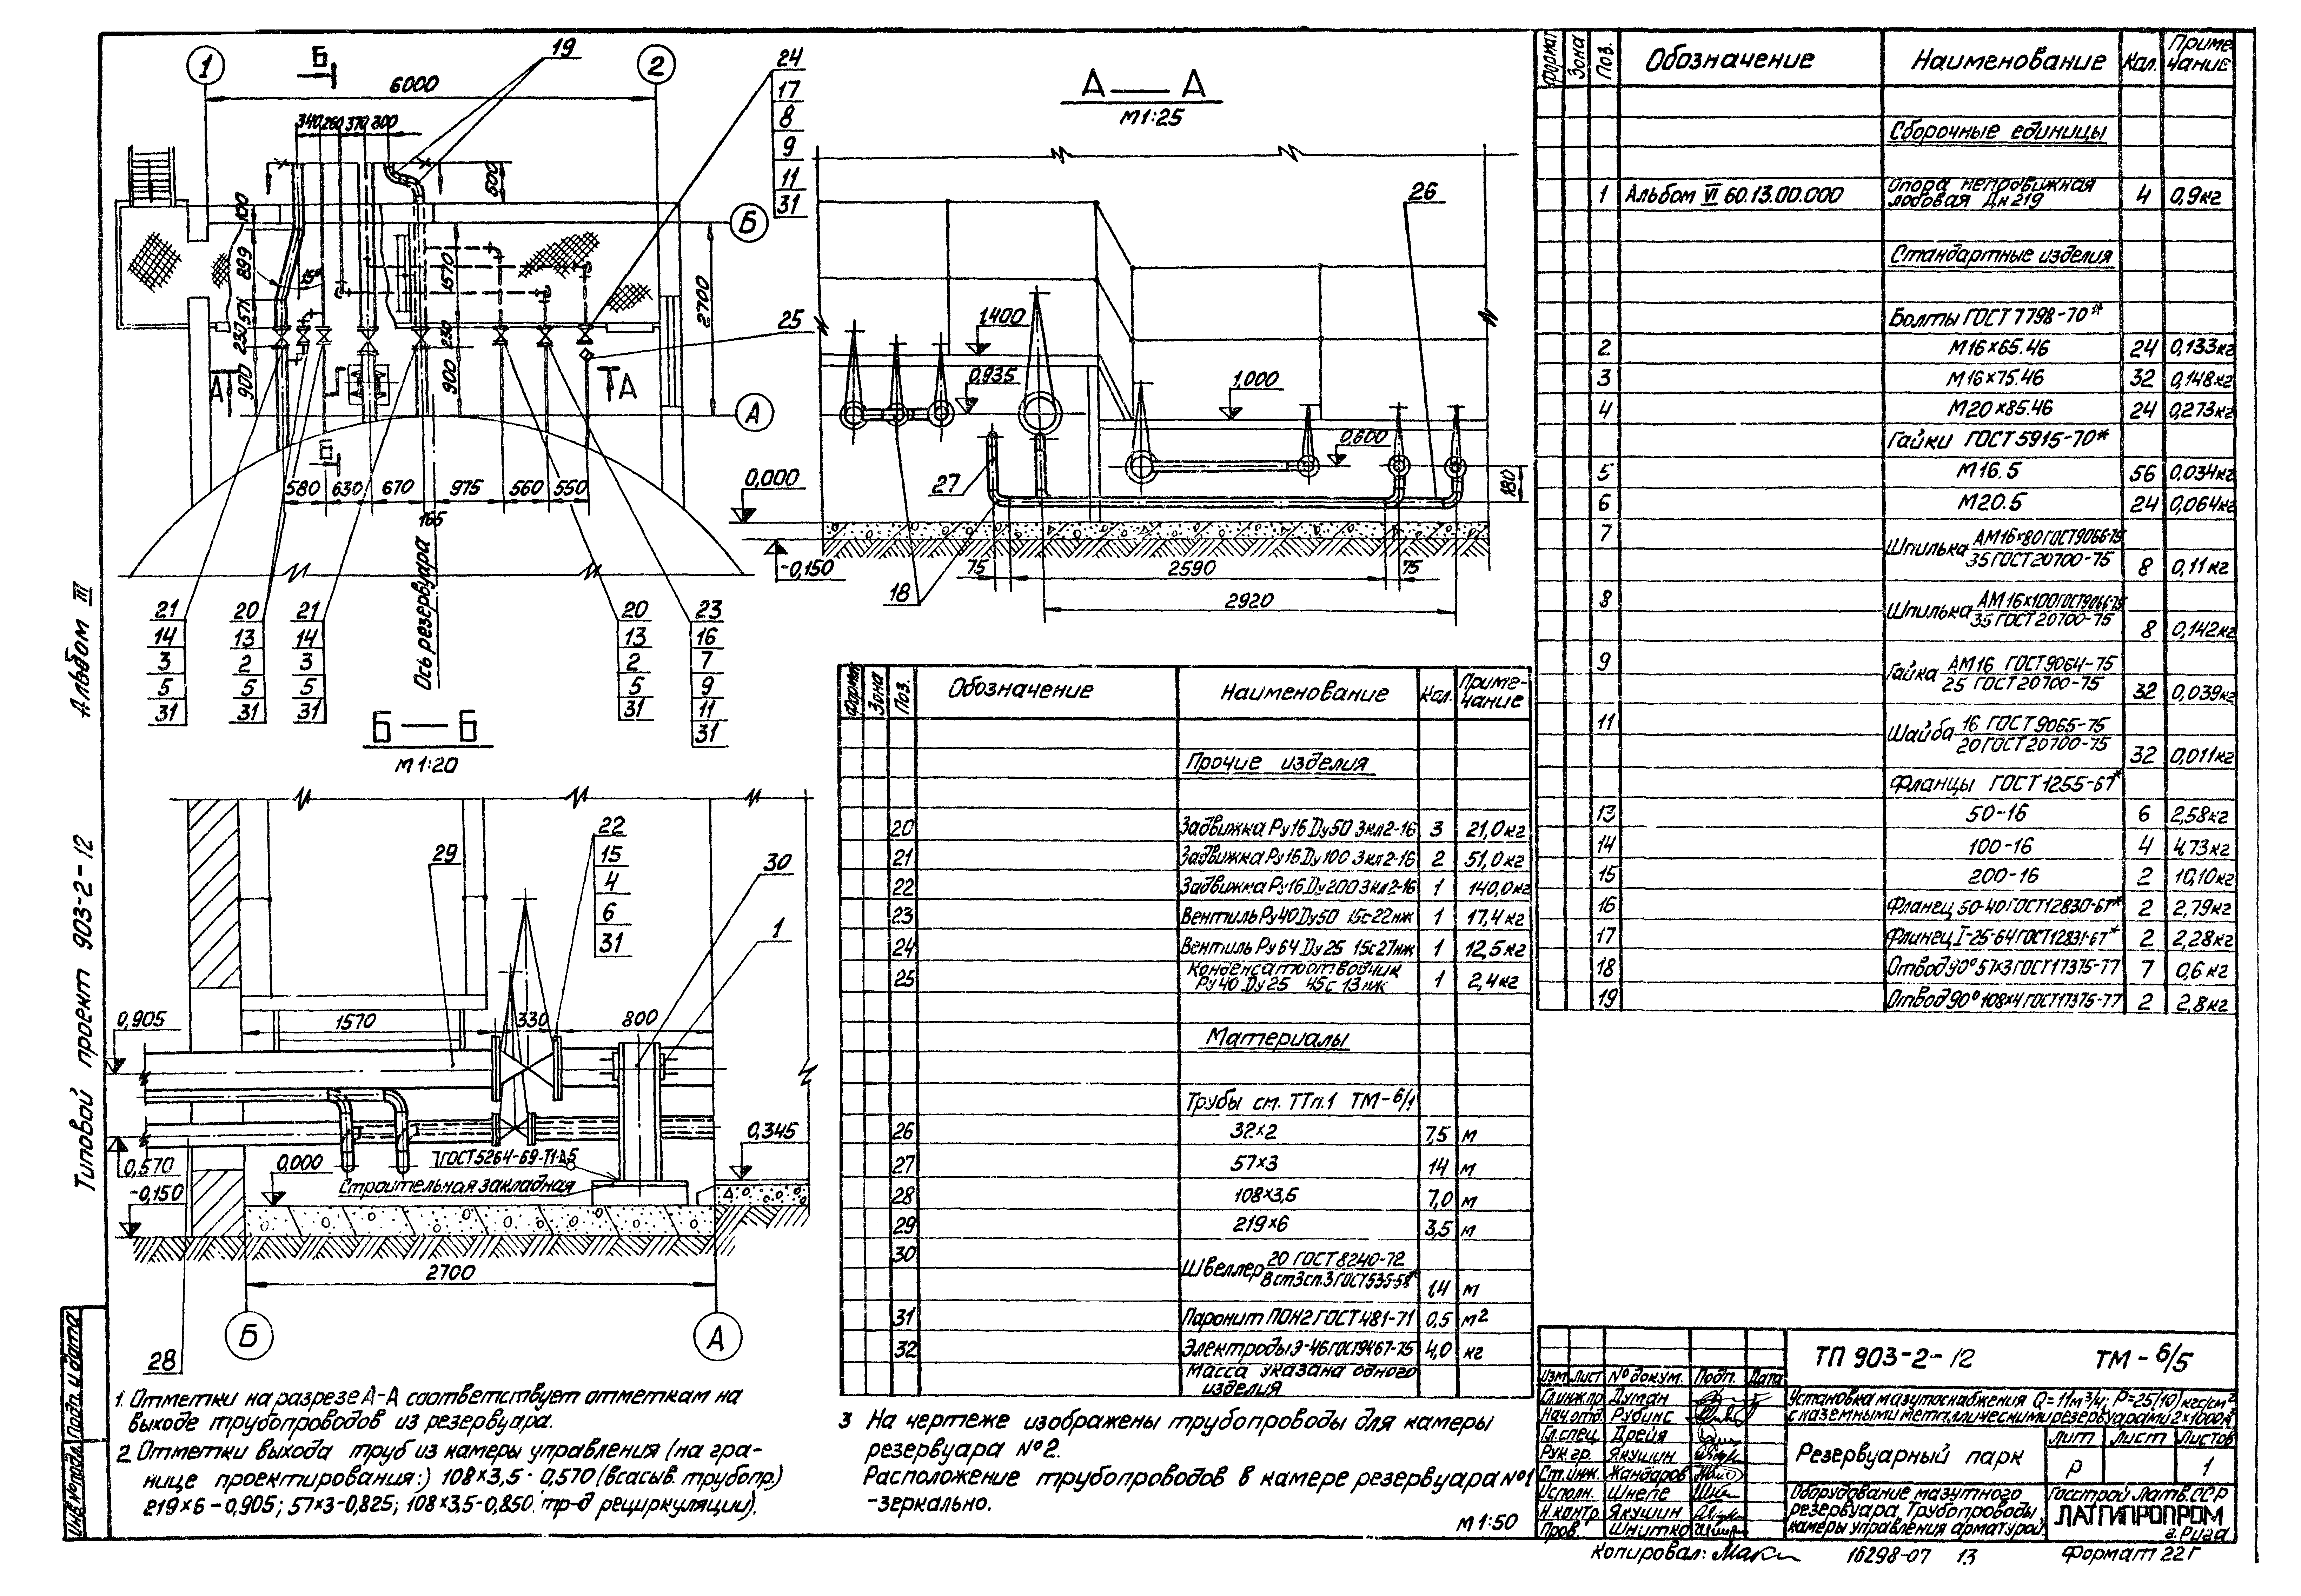 Альбом III
Типовой проект 903-2-12
Инв.№ подл.
Подп. и дата
1
2
Б
6000
340
260
370
300
19
24
17
8
9
11
31
500
100
899
15°
571
230
900
1570
230
900
2700
Б
А
25
А
А
Б
580
630
670
975
560
550
165
Ось резервуара
21
14
3
5
31
20
13
2
5
31
21
14
3
5
31
20
13
2
5
31
23
16
7
9
11
31
А — А
М1:25
26
1.400
0,935
1,000
0,600
180
27
0,000
-0,150
18
75
2590
75
2920
Б — Б
М 1:20
29
22
15
4
6
31
30
1
0,905
1570
330
800
0,570
-0,150
0,000
0,345
Строительная закладная
2700
Б
А
28
1. Отметки на разрезе А-А соответствует отметкам на
выходе трубопроводов из резервуара.
2. Отметки выхода труб из камеры управления (на гра-
нице проектирования:) 108×3,5 - 0,570 (всасыв. трубопр.)
219×6 - 0,905; 57×3-0,825; 108×3.5-0,850 тр-д рециркуляции).
3 На чертеже изображены трубопроводы для камеры
резервуара №2.
Расположение трубопроводов в камере резервуара №1
-зеркально.
М 1:50
Формат Зона Поз. Обозначение Наименование Кол. Приме-чание
Прочие изделия
20 Задвижка Ру16 Ду50 3кл2-16 3 21,0кг
21 Задвижка Ру16 Ду100 3кл2-16 2 51,0кг
22 Задвижка Ру16 Ду200 3кл2-16 1 140,0кг
23 Вентиль Ру40 Ду50 15с22нж 1 17,4кг
24 Вентиль Ру64 Ду25 15с27нж 1 12,5кг
Конденсатоотводчик
25 Ру40 Ду25 45с13нж 1 2,4кг
Материалы
Трубы см. ТТп.1 ТМ-6/1
26 32×2 7,5 м
27 57×3 14 м
28 108×3,5 7,0 м
29 219×6 3,5 м
30 Швеллер 20 ГОСТ 8240-72
Вст3сп.3 ГОСТ535-58* 1,4 м
31 Паронит ПОН2 ГОСТ 481-71 0,5 м²
32 Электроды Э-46 ГОСТ9467-75 4,0 кг
Масса указана одного
изделия
Формат Зона Поз. Обозначение Наименование Кол. Приме-чание
Сборочные единицы
1 Альбом VI 60.13.00.000 Опора неподвижная
лобовая Дн219 4 0,9кг
Стандартные изделия
Болты ГОСТ 7798-70*
2 М16×65.46 24 0,133кг
3 М16×75.46 32 0,148кг
4 М20×85.46 24 0,273кг
Гайки ГОСТ 5915-70*
5 М16.5 56 0,034кг
6 М20.5 24 0,064кг
7 Шпилька АМ16×80 ГОСТ9066-75
35 ГОСТ 20700-75 8 0,11кг
8 Шпилька АМ16×100 ГОСТ9066-75
35 ГОСТ 20700-75 8 0,142кг
9 Гайка АМ16 ГОСТ 9064-75
25 ГОСТ 20700-75 32 0,039кг
11 Шайба 16 ГОСТ 9065-75
20 ГОСТ 20700-75 32 0,011кг
Фланцы ГОСТ 1255-67*
13 50-16 6 2,58кг
14 100-16 4 4,73кг
15 200-16 2 10,10кг
16 Фланец 50-40 ГОСТ12830-67* 2 2,79кг
17 Фланец I-25-64 ГОСТ12831-67* 2 2,28кг
18 Отвод 90° 57×3 ГОСТ17375-77 7 0,6кг
19 Отвод 90° 108×4 ГОСТ17375-77 2 2,8кг
ТП 903-2-12 ТМ-6/5
Изм Лист № докум. Подп. Дата
Гл.инж.пр. Думан
Нач.отд. Рубинс
Гл.спец. Дрейя
Рук.гр. Якушин
Ст.инж. Жандаров
Исполн. Шнепе
Н.контр. Якушин
Пров. Шнитко
Установка мазутоснабжения Q=11м³/ч; Р=25(10)кгс/см²
с наземными металлическими резервуарами 2×1000м³
Резервуарный парк
Лит Лист Листов
Р 1
Оборудование мазутного
резервуара. Трубопроводы
камеры управления арматурой.
Госстрой Латв.ССР
ЛАТГИПРОПРОМ
г. Рига
Копировал:
16298-07 13
Формат 22Г